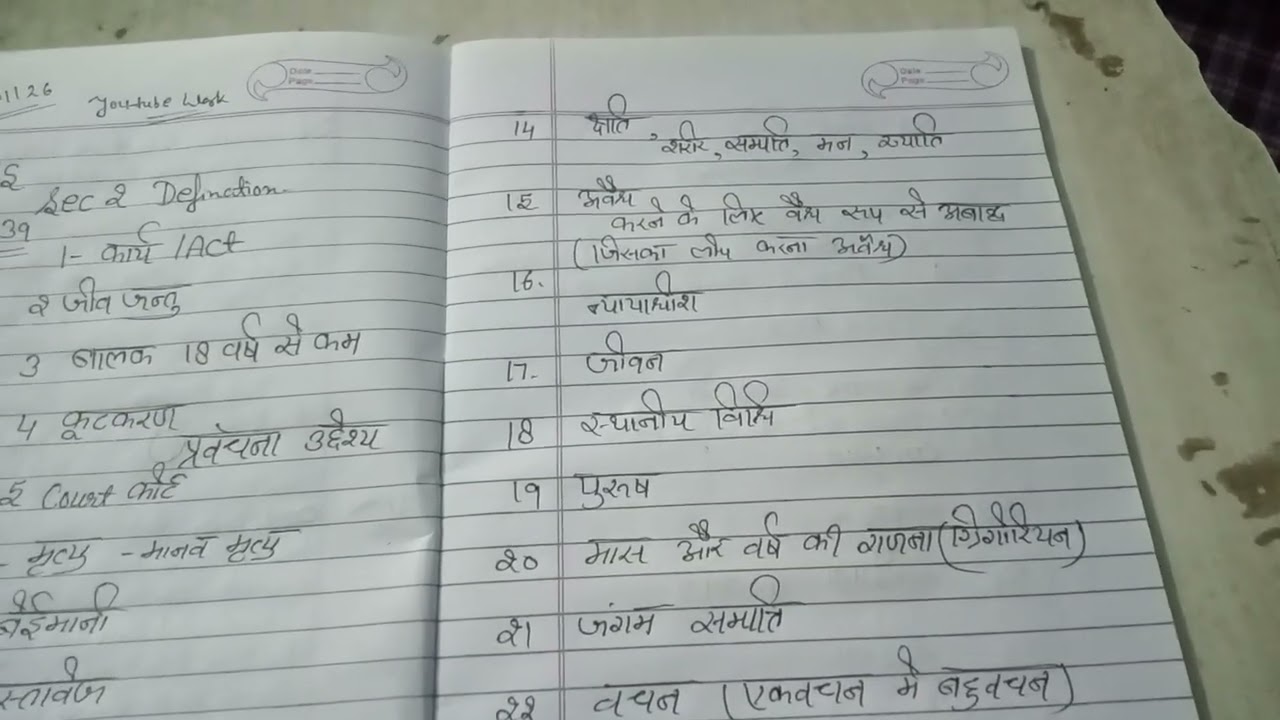 1126
Youtube Work
Sec 2 Definction
39
1- कार्य / Act
२ जीव जन्तु
3 बालक 18 वर्ष से कम
4 कूटकरण
प्रवंचना उद्देश्य
Court कोर्ट
- मृत्यु - मानव मृत्यु
बेईमानी
स्तावेज
Date
Page
Date
Page
14 क्षति,
शरीर, सम्पति, मन, ख्याति
15 अवैध
करने के लिए वैध रूप से अबाद्ध
(जिसका लोप करना अवैध)
16.
न्यायाधीश
17- जीवन
18 स्थानीय विधि
19 पुरूष
२० मास और वर्ष की गणना (ग्रिगोरियन)
२1 जंगम सम्पति
२२ वचन (एकवचन मे बहुवचन)